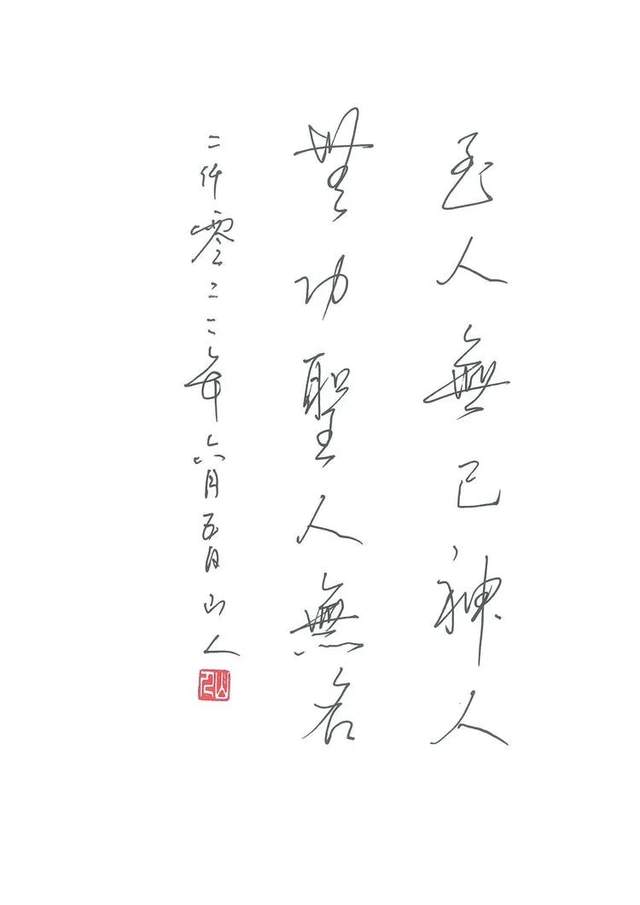 至人無己神人
無功聖人無名
二仟零二二年六月五日山人